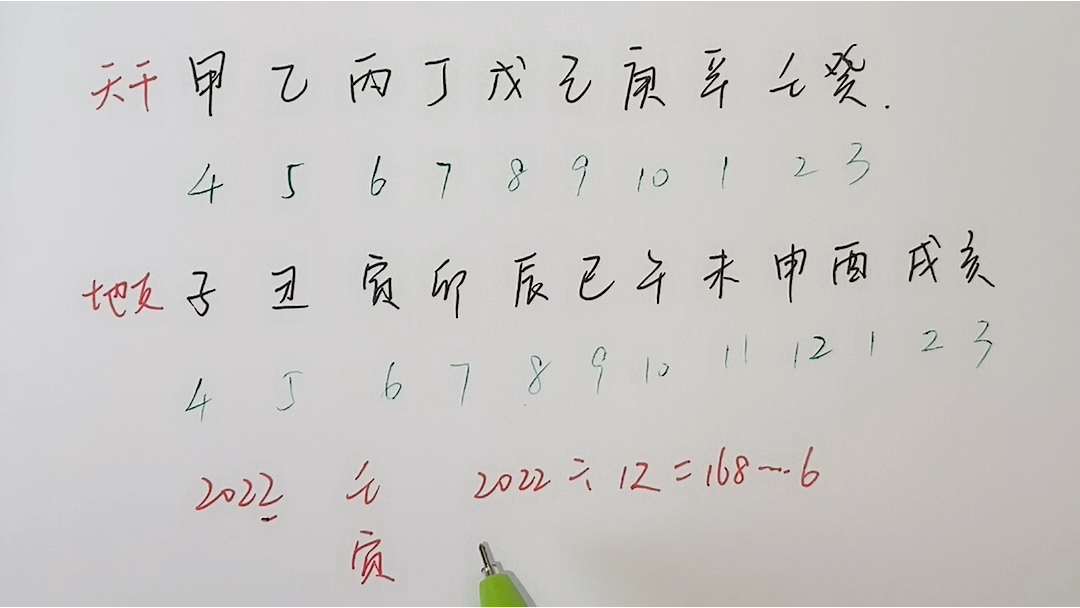 天干 甲 乙 丙 丁 戊 己 庚 辛 壬 癸.
4 5 6 7 8 9 10 1 2 3
地支 子 丑 寅 卯 辰 巳 午 未 申 酉 戌 亥
4 5 6 7 8 9 10 11 12 1 2 3
2022 壬 2022÷12=168…6
寅